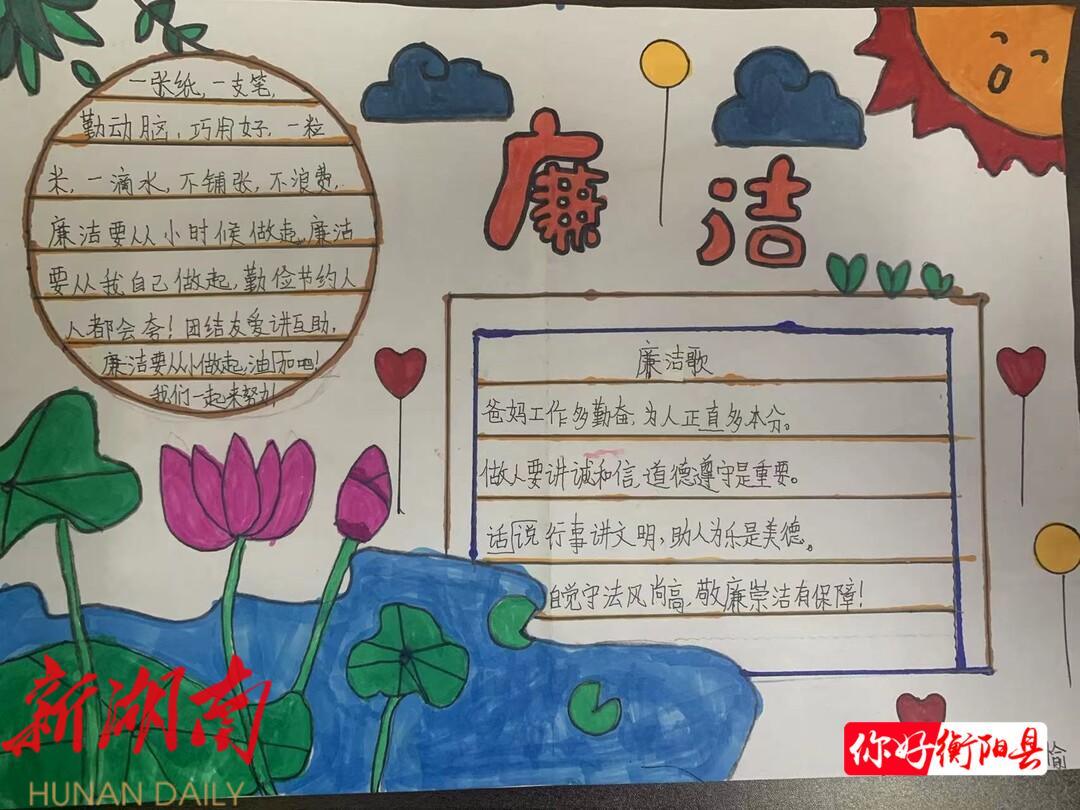 一张纸，一支笔，
勤动脑，巧用好，一粒
米，一滴水，不铺张，不浪费，
廉洁要从小时候做起，廉洁
要从我自己做起，勤俭节约人
人都会夸！团结友爱讲互助，
廉洁要从小做起，油和吧！
我们一起来努力
廉洁
廉洁歌
爸妈工作多勤奋，为人正直多本分。
做人要讲诚和信，道德遵守是重要。
话说行事讲文明，助人为乐是美德。
自觉守法风尚高，敬廉崇洁有保障！
新湖南
HUNAN DAILY
你好衡阳县